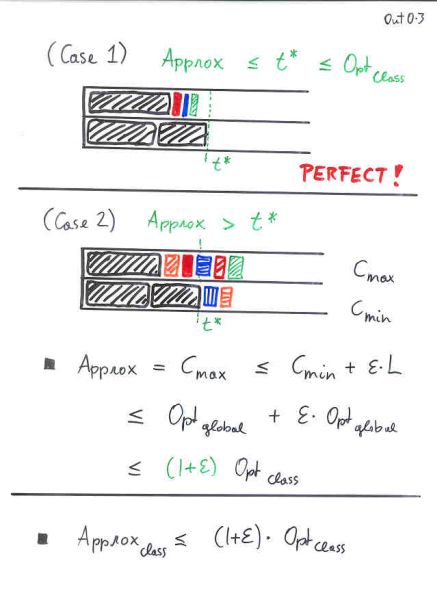 Out 0-3
(Case 1) Approx ≤ t* ≤ Opt class
t*
PERFECT!
(Case 2) Approx > t*
C max
C min
t*
■ Approx = C max ≤ C min + ε·L
≤ Opt global + ε· Opt global
≤ (1+ε) Opt class
■ Approx class ≤ (1+ε)· Opt class